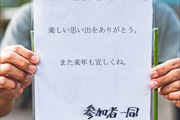 楽しい思い出をありがとう。
また来年も宜しくね。
参加者一同